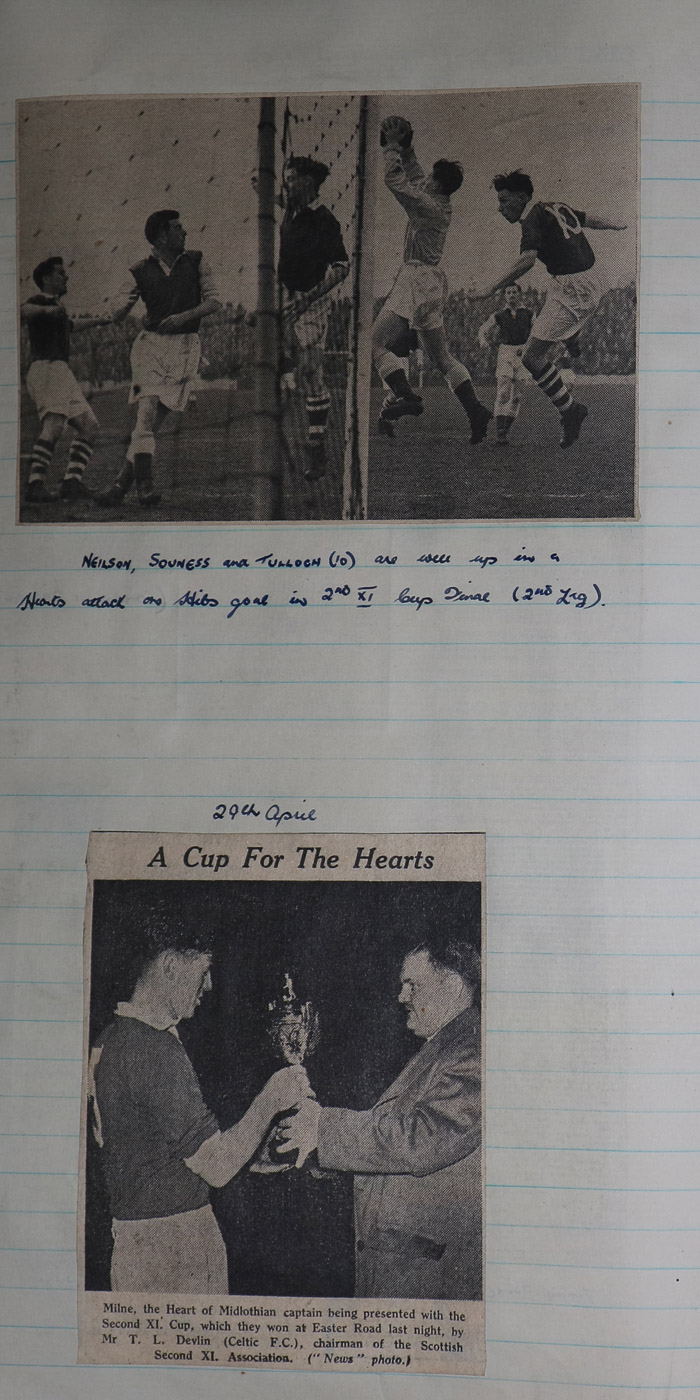 10
NEILSON, SOUNESS and TULLOCH (10) are well up in a
Hearts attack on Hibs goal in 2nd XI Cup Final (2nd Leg).
29th April
A Cup For The Hearts
Milne, the Heart of Midlothian captain being presented with the
Second XI. Cup, which they won at Easter Road last night, by
Mr T. L. Devlin (Celtic F.C.), chairman of the Scottish
Second XI. Association. ("News" photo.)